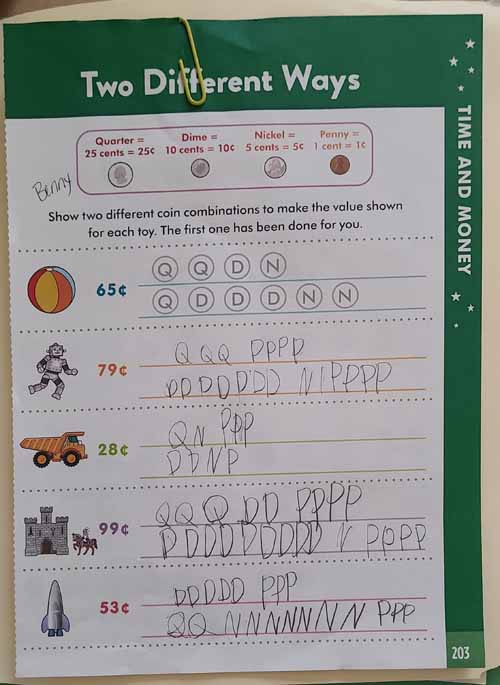 Two Different Ways
TIME AND MONEY
Quarter = 25 cents = 25¢
Dime = 10 cents = 10¢
Nickel = 5 cents = 5¢
Penny = 1 cent = 1¢
Benny
Show two different coin combinations to make the value shown
for each toy. The first one has been done for you.
65¢
Q Q D N
Q D D D N N
79¢
QQQ PPPP
DDDDDDD N I PPPP
28¢
QN PPP
DDNP
99¢
QQQ DD PPPP
DDDDDDDDD N PPPP
53¢
DDDDD PPP
QQ NNNNNNN PPP
203